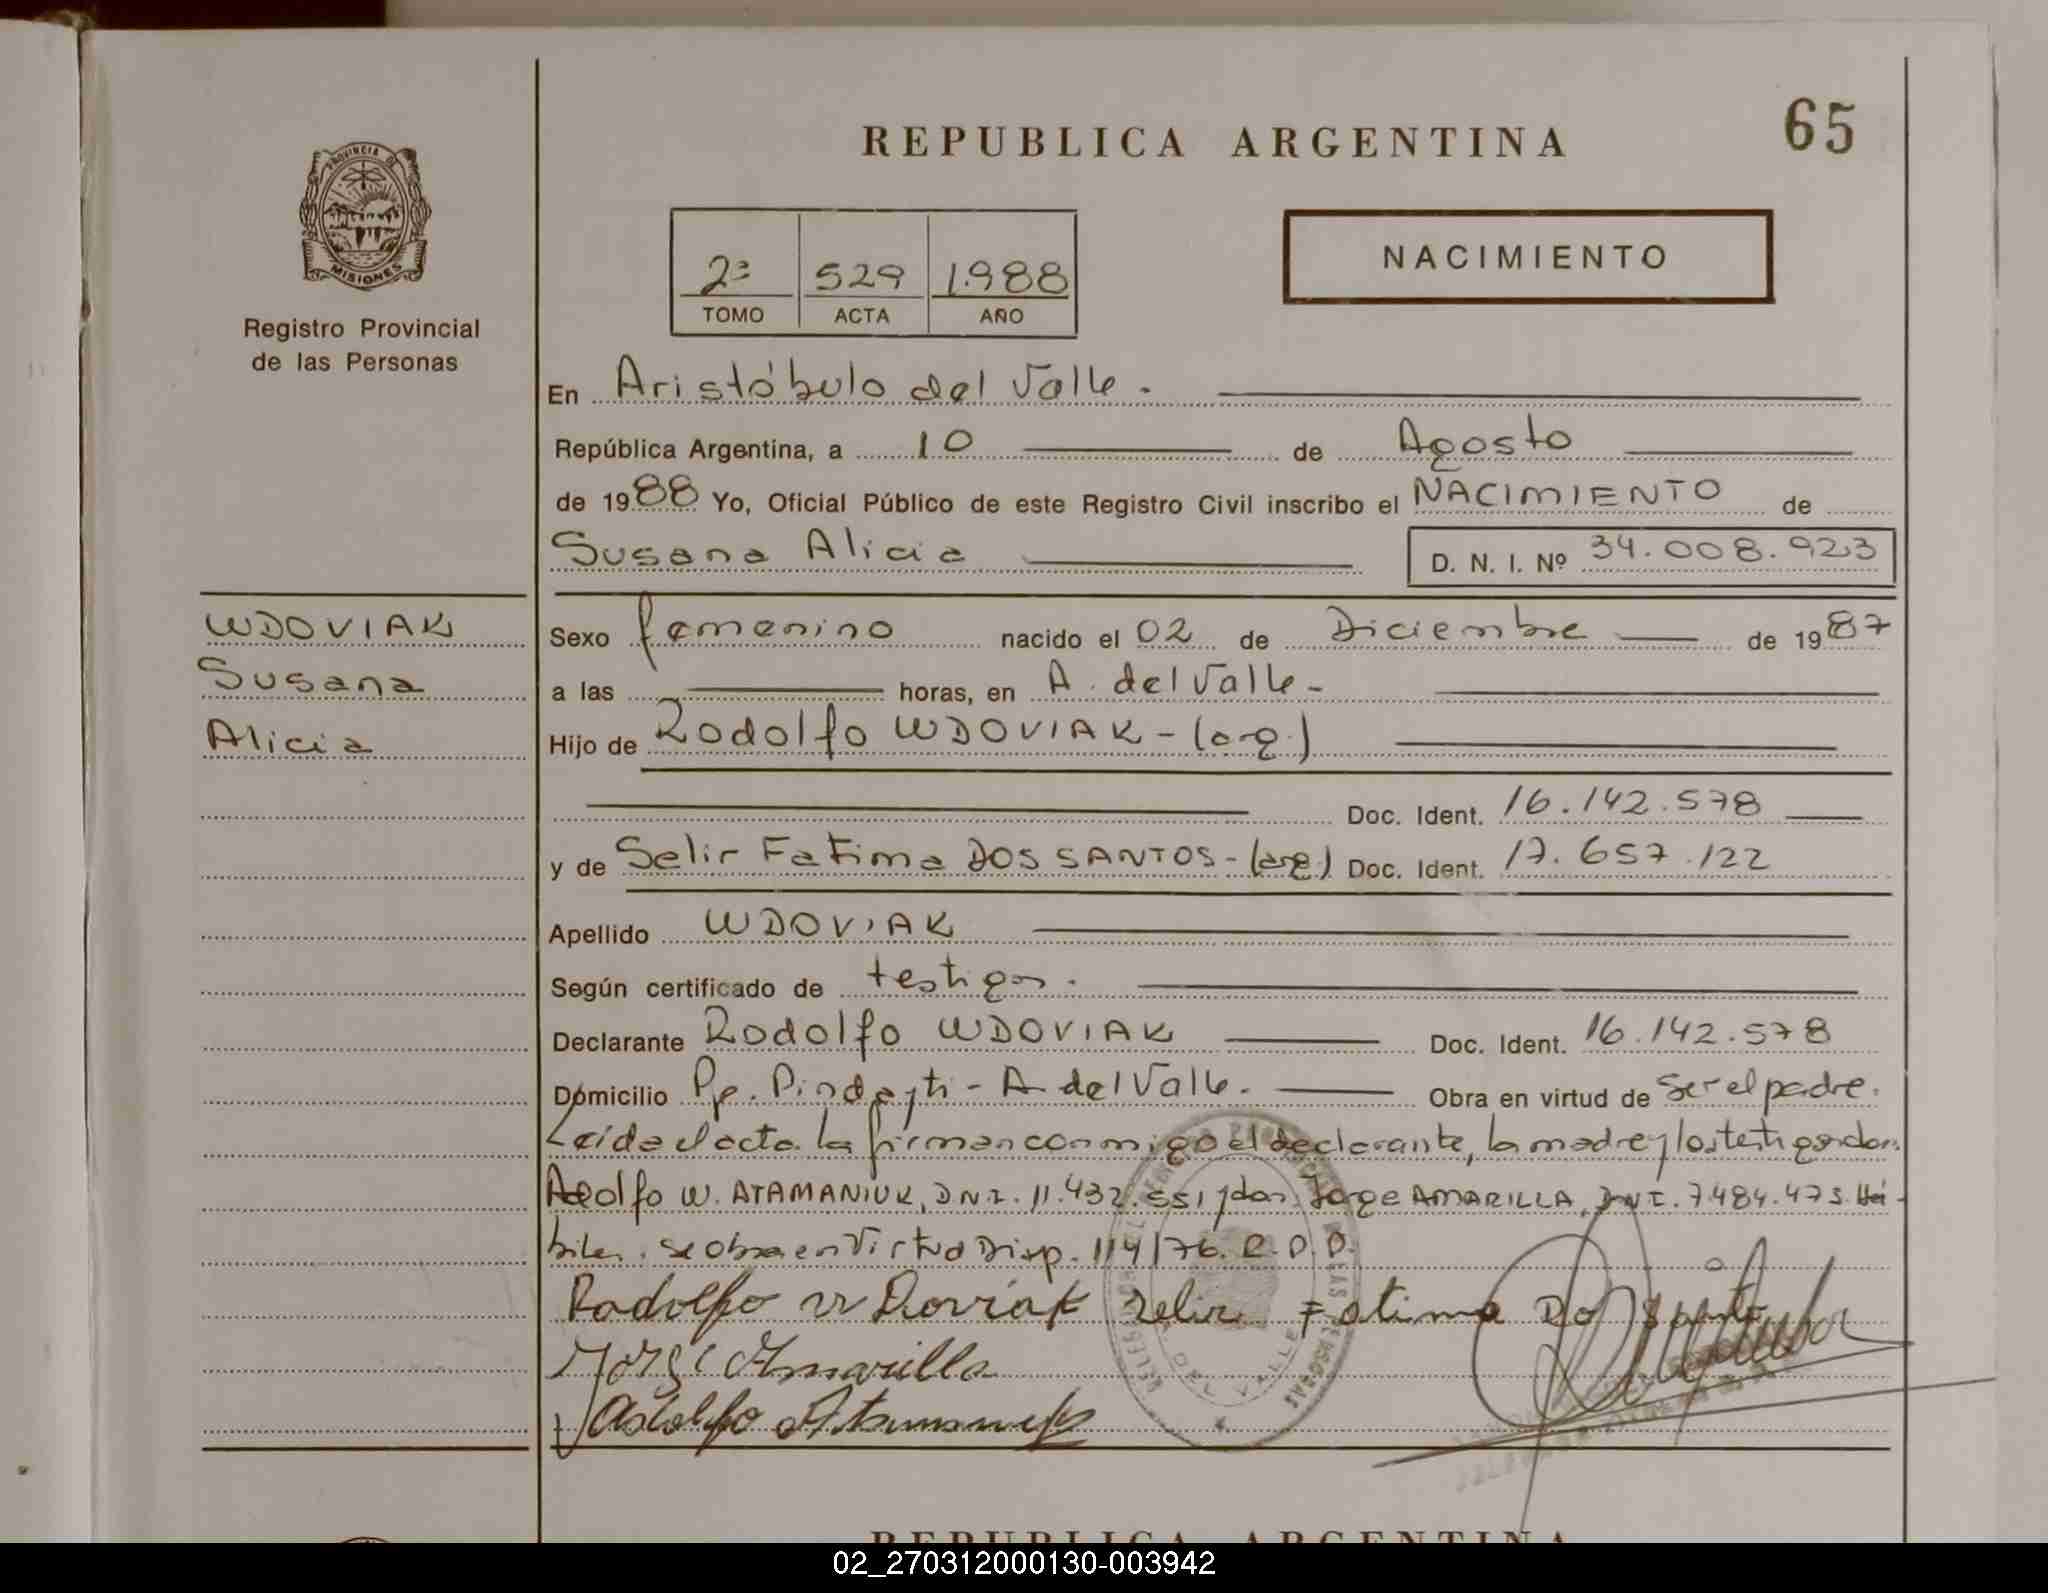 REPUBLICA ARGENTINA
65
PROVINCIA DE
MISIONES
Registro Provincial
de las Personas
2º 529 1.988
TOMO ACTA AÑO
NACIMIENTO
En Aristóbulo del Valle.
República Argentina, a 10 de Agosto
de 1988 Yo, Oficial Público de este Registro Civil inscribo el NACIMIENTO de
Susana Alicia D. N. I. Nº 34.008.923
WDOVIAK
Susana
Alicia
Sexo femenino nacido el 02 de Diciembre de 1987
a las horas, en A. del Valle-
Hijo de Rodolfo WDOVIAK-(arg.)
Doc. Ident. 16.142.578
y de Selir Fatima DOS SANTOS-(arg.) Doc. Ident. 17.657.122
Apellido WDOVIAK
Según certificado de testigos.
Declarante Rodolfo WDOVIAK Doc. Ident. 16.142.578
Domicilio Pp. Pindayti-A del Valle. Obra en virtud de ser el padre.
Leida el acta la firman conmigo el declarante, la madre y los testigos don:
Adolfo W. ATAMANIUK, D.N.I. 11.432.551 y don Jorge AMARILLA, D.N.I. 7.484.473. Há-
biles. se obra en virtud Disp. 114/76. R.P.P.
Rodolfo w Doviak Zelir Fatima Do santo
Jorge Amarilla
Adolfo Atamaniuk
DEL VALLE
REPUBLICA ARGENTINA
02_270312000130-003942